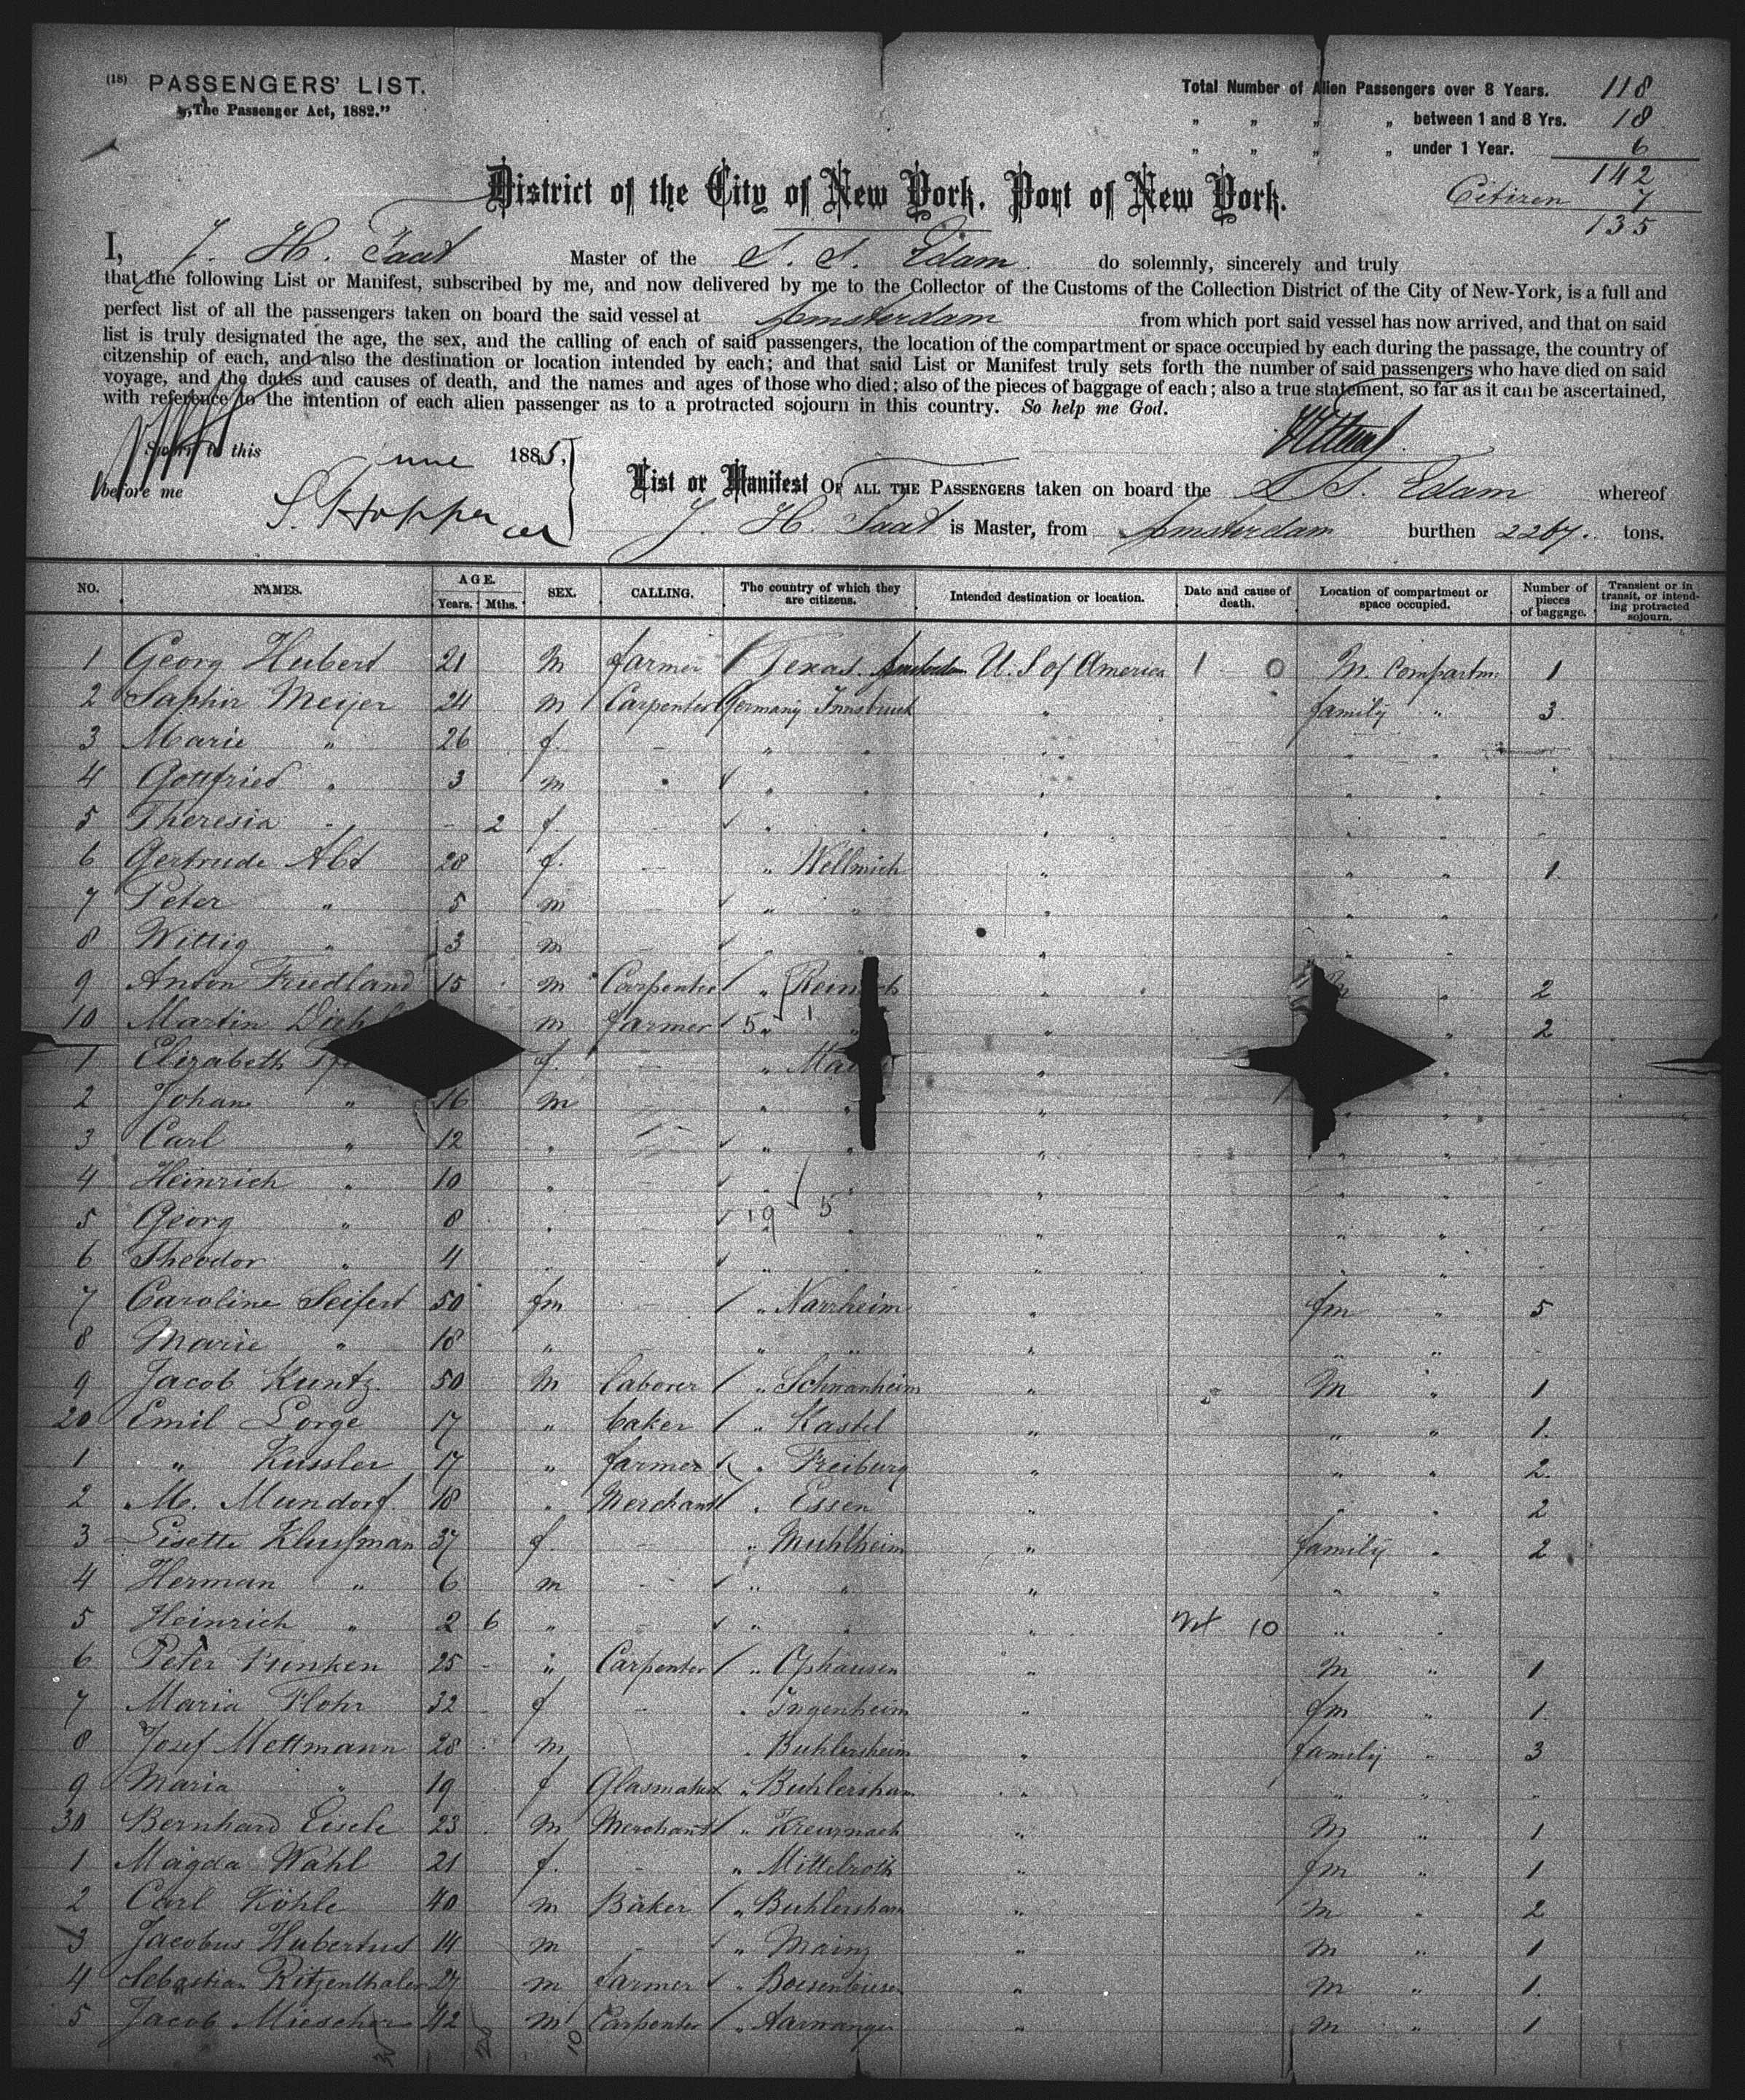 (18) PASSENGERS' LIST.
„The Passenger Act, 1882.”
Total Number of Alien Passengers over 8 Years. 118
„ „ „ „ between 1 and 8 Yrs. 18
„ „ „ „ under 1 Year. 6
142
Citizen 7
135
District of the City of New York, Port of New York.
I, J. H. Taat Master of the S. S. Edam do solemnly, sincerely and truly
that the following List or Manifest, subscribed by me, and now delivered by me to the Collector of the Customs of the Collection District of the City of New-York, is a full and
perfect list of all the passengers taken on board the said vessel at Amsterdam from which port said vessel has now arrived, and that on said
list is truly designated the age, the sex, and the calling of each of said passengers, the location of the compartment or space occupied by each during the passage, the country of
citzenship of each, and also the destination or location intended by each; and that said List or Manifest truly sets forth the number of said passengers who have died on said
voyage, and the dates and causes of death, and the names and ages of those who died; also of the pieces of baggage of each; also a true statement, so far as it can be ascertained,
with reference to the intention of each alien passenger as to a protracted sojourn in this country. So help me God.
Sworn to this June 1885,
before me
List or Manifest OF ALL THE PASSENGERS taken on board the S. S. Edam whereof
J. H. Taat is Master, from Amsterdam burthen 2267. tons.
NO. NAMES. AGE. Years. Mths. SEX. CALLING. The country of which they are citizens. Intended destination or location. Date and cause of death. Location of compartment or space occupied. Number of pieces of baggage. Transient or in transit, or intending protracted sojourn.
1 Georg Hubert 21 M farmer Texas U. S of America 1 0 M. Compartm. 1
2 Saphir Meijer 24 m Carpenter Germany Innsbruck „ family „ 3
3 Marie „ 26 f. - „ „ „ „ „
4 Gottfried „ 3 m „ „ „ „ „
5 Theresia „ - 2 f. - „ „ „ „ „
6 Gertrude Abt 28 f. - „ Wellmich „ „ „ 1.
7 Peter „ 5 m - „ „ „ „ „
8 Wittig „ 3 m - „ „ „ „ „
9 Anton Friedland 15 m Carpenter „ „ „ 2
10 Martin m farmer 5 „ „ „ 2
1 Elizabeth f. - „ „
2 Johan „ 16 m - „ „ „ „ „
3 Carl „ 12 „ - „ „ „ „ „
4 Heinrich „ 10 „ - „ „ „ „ „
5 Georg „ 8 „ - 19 5 „ „ „
6 Theodor „ 4 „ - „ „ „ „ „
7 Caroline Seifert 50 fm - „ Narrheim „ fm „ 5
8 Marie „ 18 „ „ „ „ „ „ -
9 Jacob Kuntz 50 M laborer „ Schwanheim „ 5 M „ 1
20 Emil Lorge 17 „ baker „ Kastel „ „ „ 1.
1 „ Kussler 17 „ farmer „ Freiburg „ „ „ 2.
2 M. Mundorf 18 „ Merchant „ Essen „ „ „ 2
3 Lisette Klusman 37 f. - „ Muhlheim „ family „ 2
4 Herman „ 6 m - „ „ „ „ „
5 Heinrich „ 2 6 „ - „ „ „ 10 „ „
6 Peter Funken 25 - „ Carpenter „ Ophausen „ M „ 1
7 Maria Flohr 32 f - „ Ingenheim „ fm „ 1.
8 Josef Mettmann 28 m „ Buhlersheim „ family „ 3
9 Maria „ 19 f Glasmaker „ Buhlersham „ „ „ „
30 Bernhard Eisele 23 M Merchant „ Kreuznach „ M „ 1
1 Magda Wahl 21 f. - „ Mittelroth „ fm „ 1
2 Carl Köhle 40 m Baker „ Buhlersham „ m „ 2
3 Jacobus Hubertus 14 m - „ Mainz „ m „ 1
4 Sebastian Ritzenthaler 27 m farmer „ „ M „ 1.
5 Jacob Miescher 42 M Carpenter „ Aarwangen „ m „ 1
10